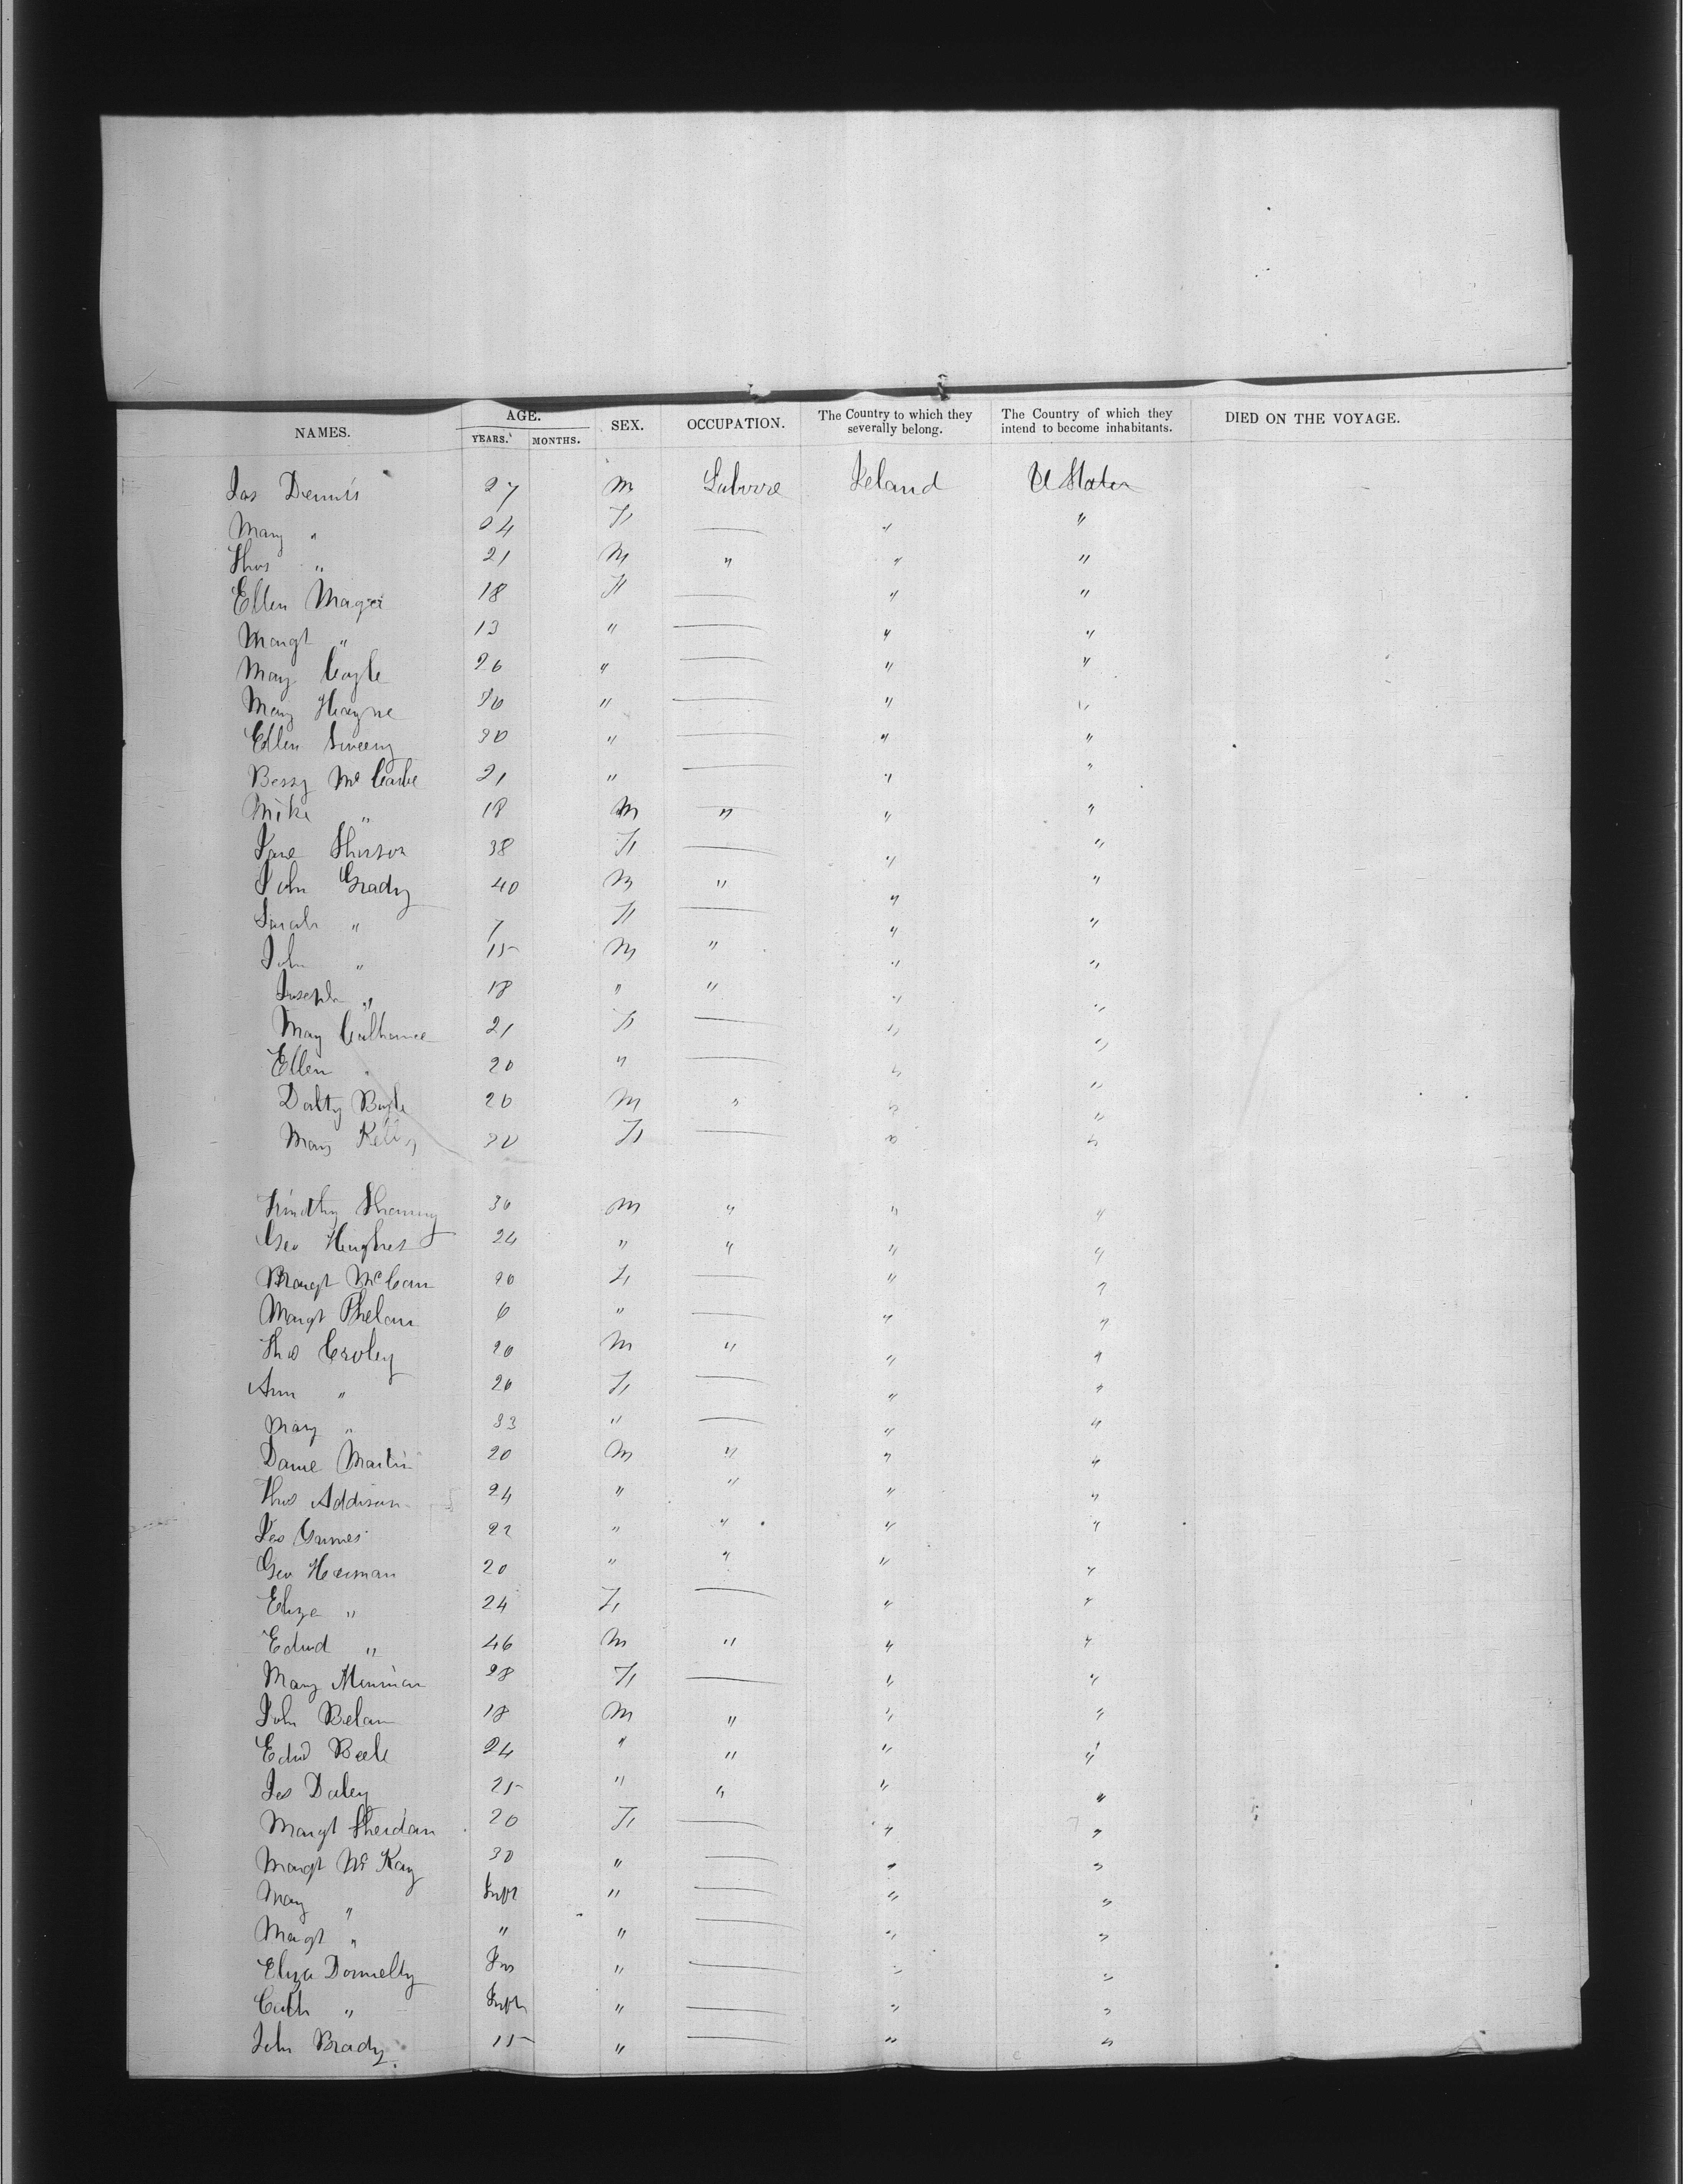 NAMES. AGE. SEX. OCCUPATION. The Country to which they severally belong. The Country of which they intend to become inhabitants. DIED ON THE VOYAGE.
YEARS. MONTHS.
Jas Dennis 27 M Ireland U States
Mary " 24 F — " "
Thos " 21 M " " "
Ellen 18 F — " "
Margt " 13 " — " "
Mary Coyle 26 " — " "
Mary " — " "
Ellen Sweeny 30 " — " "
Bessy McCabe 21 " — " "
Mike " 18 M " " "
Jane 38 F — " "
John Grady 40 M " " "
Sarah " 7 F — " "
John " 15 M " " "
Joseph " 18 " " " "
Mary Culhane 21 F — " "
Ellen " 20 " — " "
Boyle 20 M " " "
Mary Kelly 30 F — " "
Timothy 30 M " " "
Geo Hughes 24 " " " "
Margt McCan 20 F — " "
Margt Phelan 6 " — " "
Thos Croley 20 M " " "
Ann " 20 F — " "
Mary " 33 " — " "
Martin 20 M " " "
Thos Addison 24 " " " "
Jas Grimes 22 " " " "
Geo 20 " " " "
Eliza " 24 F — " "
Edwd " 46 M " " "
Mary 28 F — " "
John Belan 18 M " " "
Edwd 24 " " " "
Jas Daley 25 " " " "
Margt Sheridan 20 F — " "
Margt McKay 30 " — " "
Mary " Inft " — " "
Margt " " " — " "
Eliza Donnelly " — " "
Cath " Inft " — " "
John Brady 15 " — " "